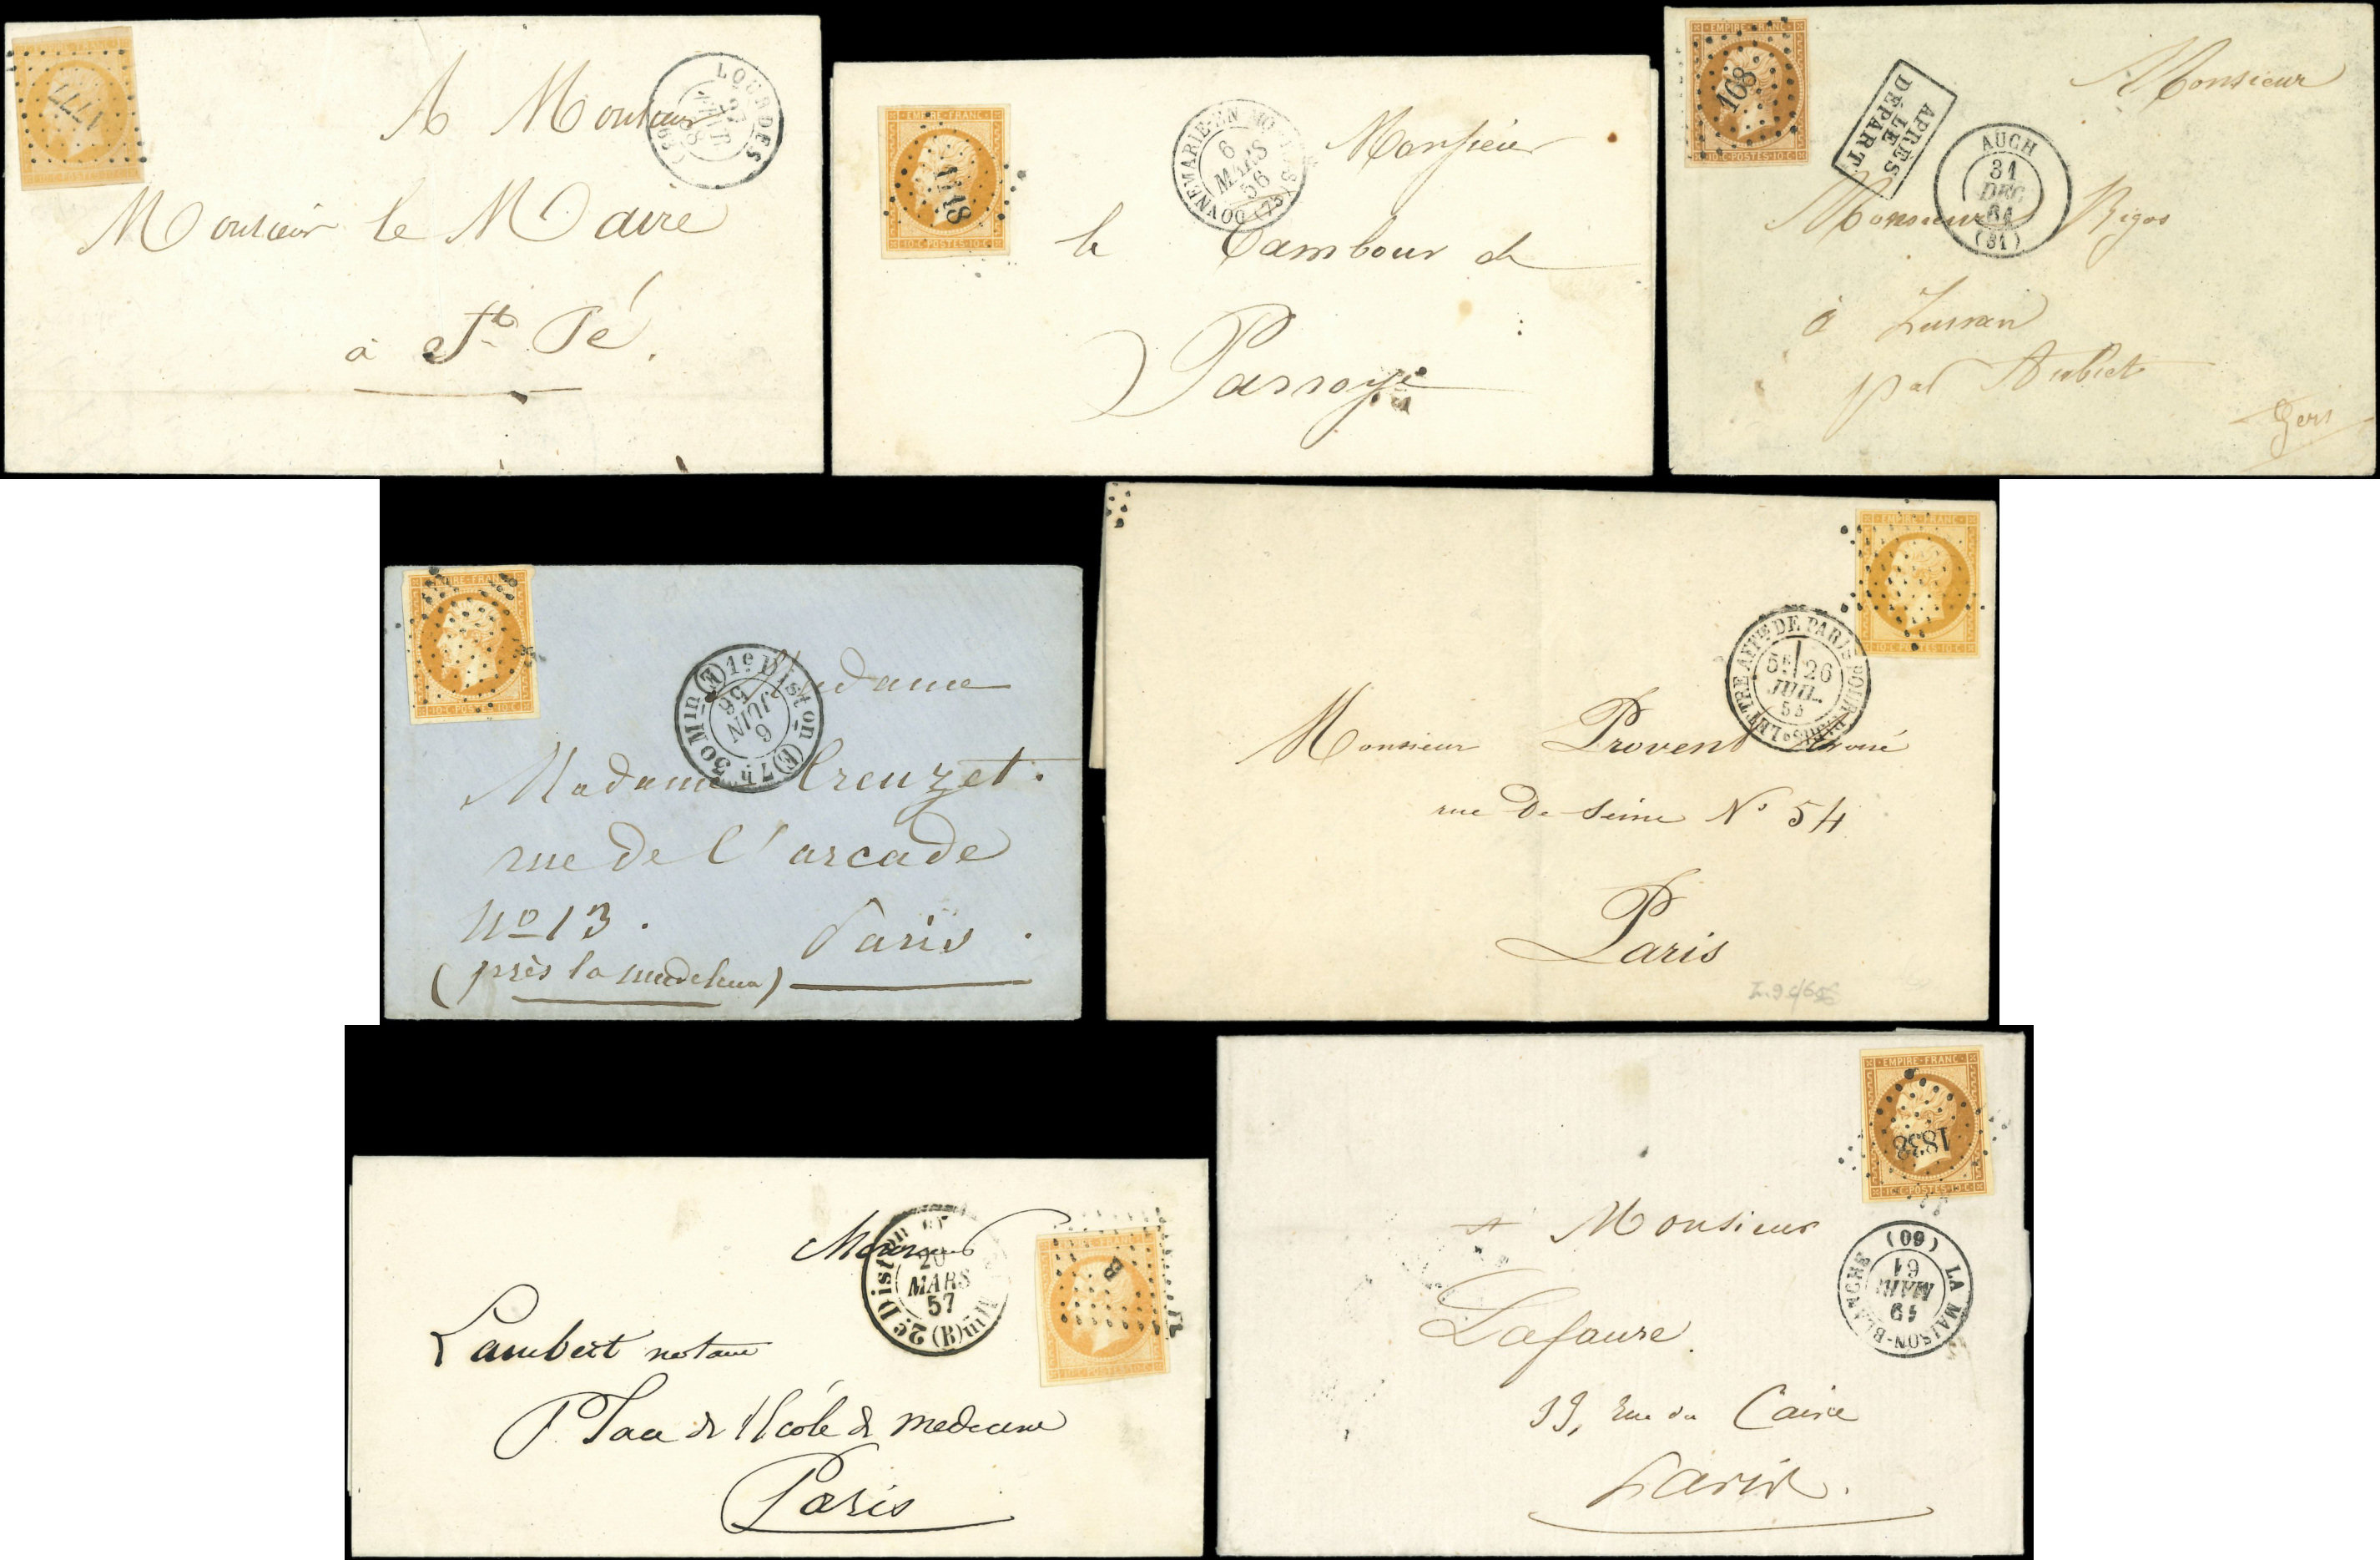 1777
LOURDES
(63)
A Monsieur
Monsieur le Maire
à St. Pé.
EMPIRE FRANC
10 C POSTES 10 C
1118
DONNEMARIE-EN-MONTOIS (75)
6
MARS
56
Monsieur
le Tambour de
EMPIRE FRANC
10 C POSTES 10 C
108
APRÈS
LE
DÉPART
AUCH
31
DEC.
61
(31)
Monsieur
Monsieur Rigos
à Lussan
par Aubiet
Gers
EMPIRE FRANC
10 C POSTES 10 C
1e Diston (E) 7h 30 Min (E)
6
JUIN
56
Madame
Madame Creuzet.
rue de l'arcade
No 13.
Paris.
(près la madeleine)
EMPIRE FRANC
10 C POSTES 10 C
LETTRE AFFie DE PARIS POUR PARIS
5E 26
JUIL.
Monsieur Provent avoué
rue De Seine No 54
Paris
EMPIRE FRANC
10 C POSTES 10 C
B
2e Diston
(B)
20
MARS
57
Monsieur
Lambert notaire
Place de l'Ecole de medecine
Paris
EMPIRE FRANC
10 C POSTES 10 C
1838
LA MAISON-BLANCHE (60)
19
MARS
61
A Monsieur
Lafaure.
Rue du Caire
Paris.